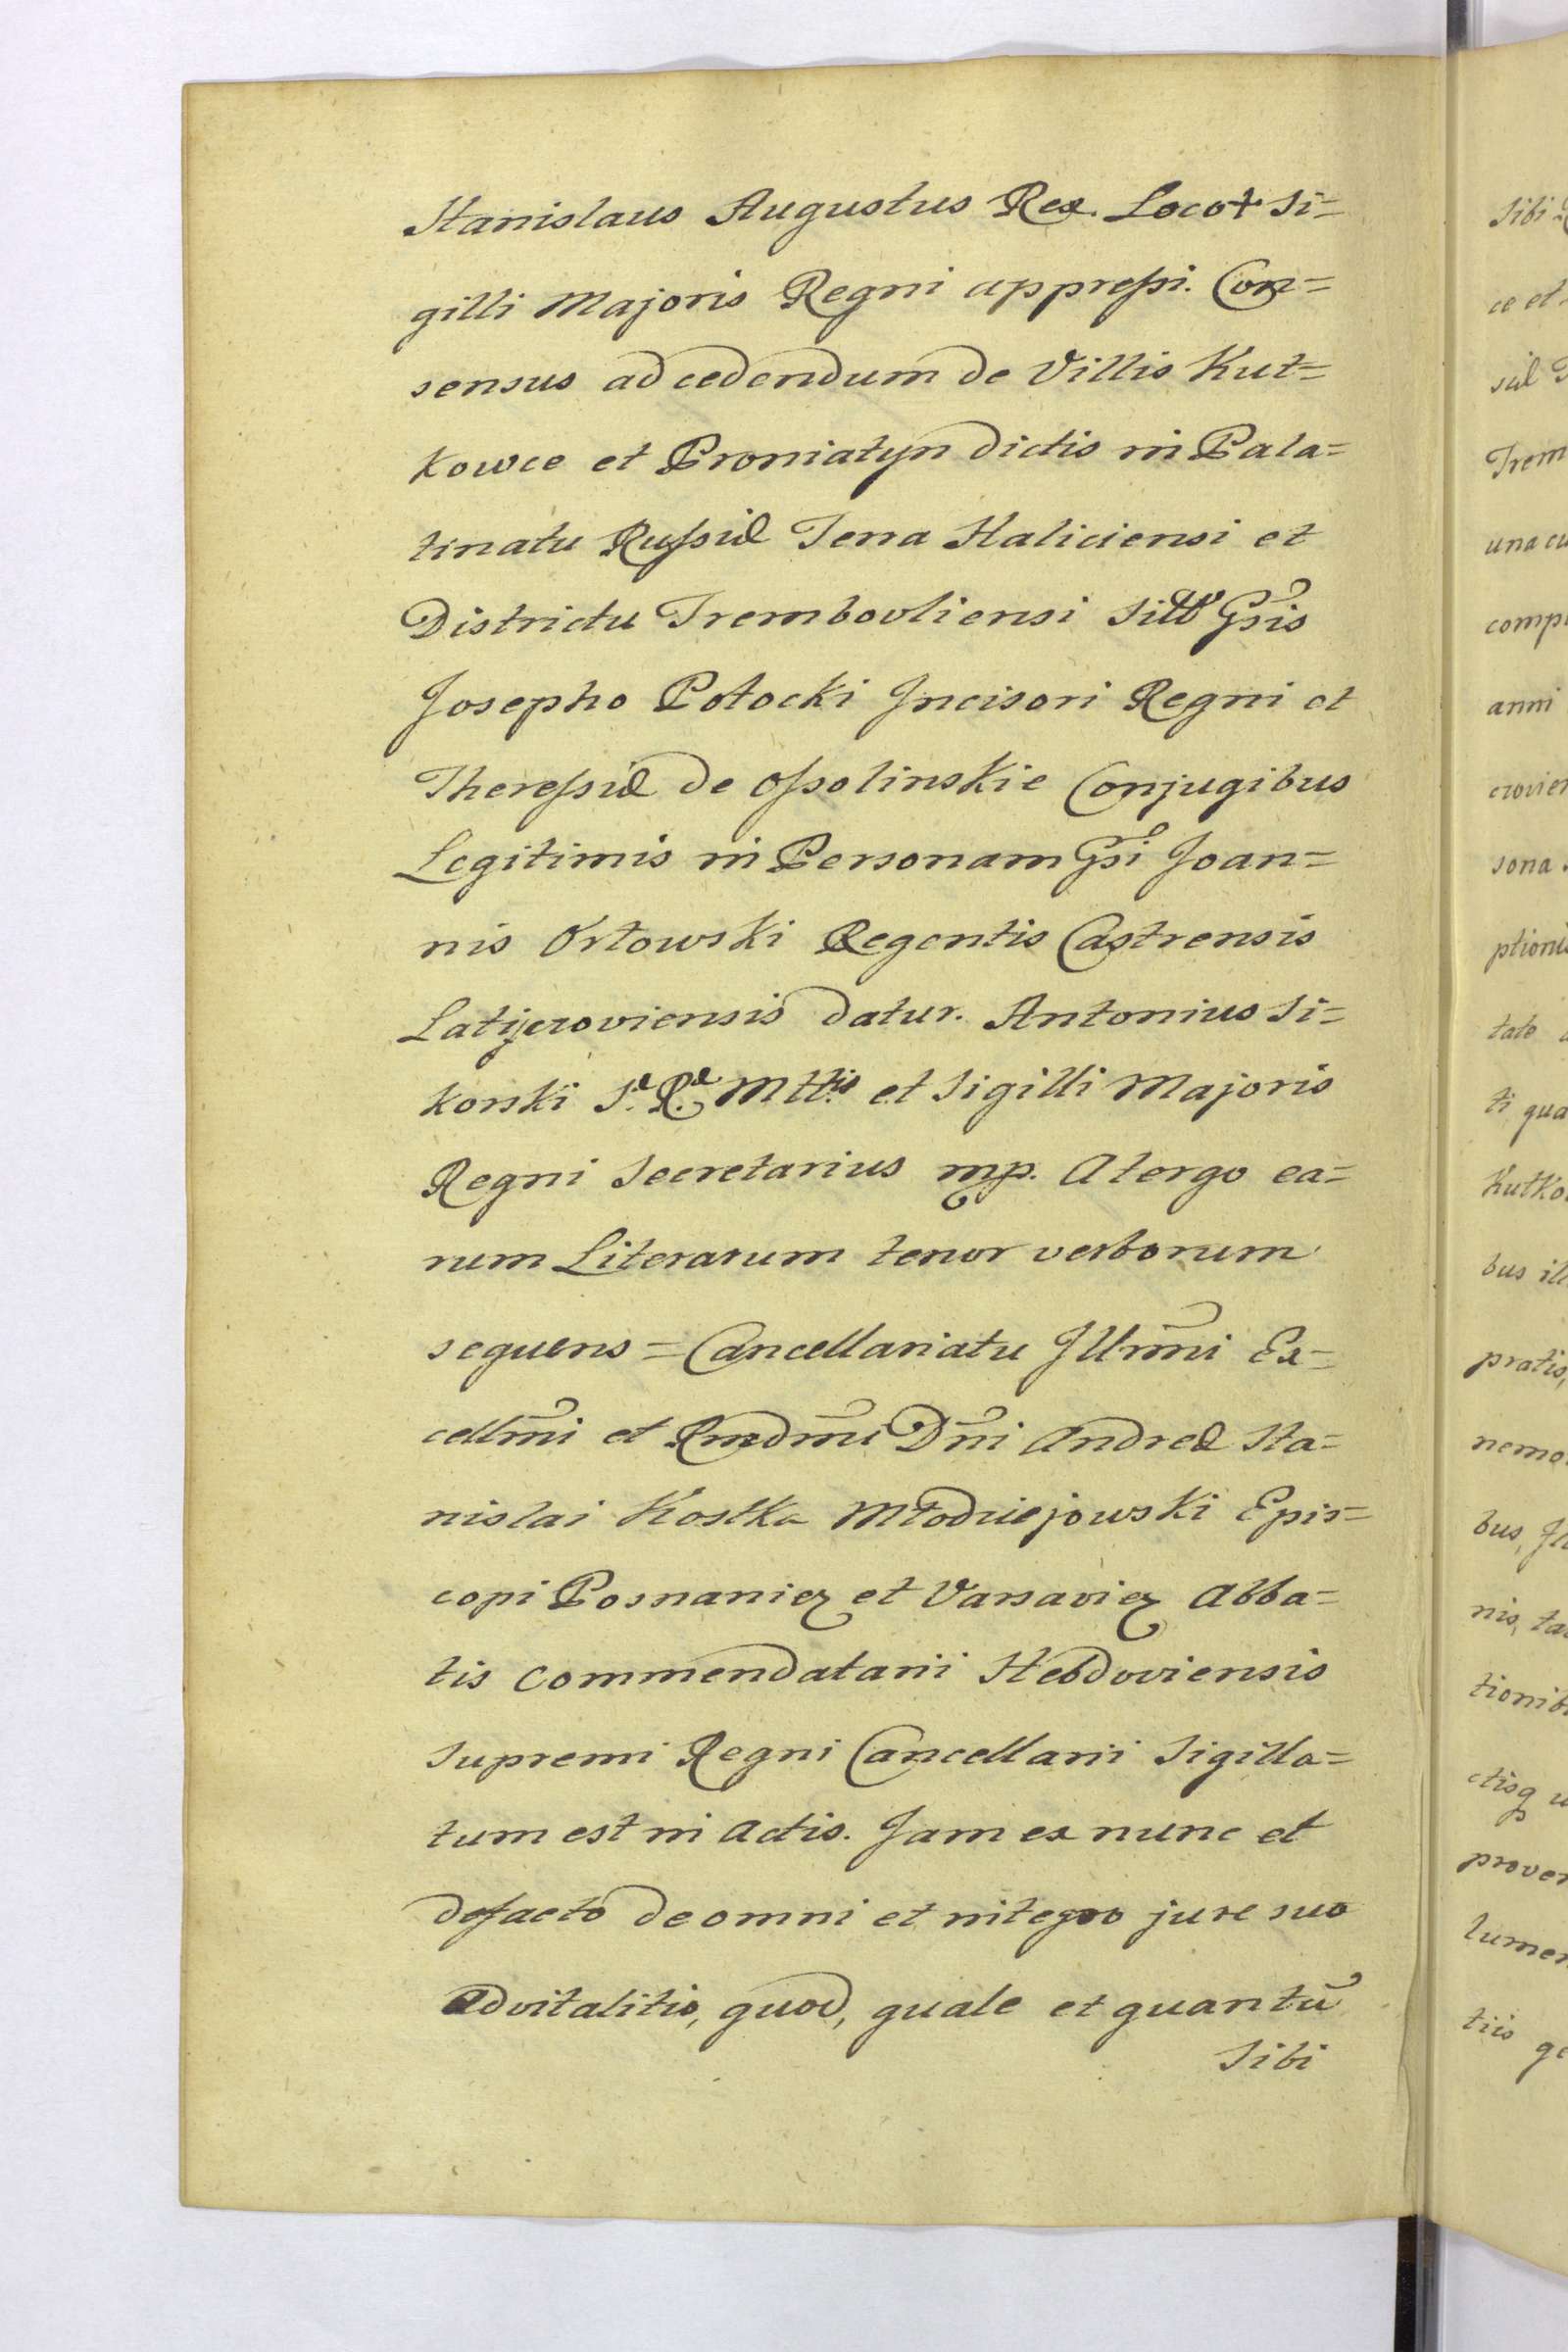 Stanislaus Augustus Rex. Loco + Si=
gilli Majoris Regni appressi. Con=
sensus ad cedendum de Villis Kut=
kowce et Proniatyn dictis in Pala=
tinatu Russiæ Terra Haliciensi et
Districtu Trembovliensi sitis Gsis
Josepho Potocki Incisori Regni et
Theressiæ de Ossolinskie Conjugibus
Legitimis in Personam Gsi Joan=
nis Orłowski Regentis Castrensis
Latyczoviensis datur. Antonius Si=
korski S. R. Mttis et Sigilli Majoris
Regni Secretarius mp. A tergo ea=
rum Literarum tenor verborum
sequens = Cancellariatu Illrmi Ex=
cellmi et Rmdmi Dñi Andreæ Sta=
nislai Kostka Młodziejowski Epis=
copi Posnanien et Varsavien Abba=
tis Commendatarii Hebdoviensis
Supremi Regni Cancellarii Sigilla=
tum est in Actis. Jam ex nunc et
defacto de omni et integro jure suo
Advitalitio, quod, quale et quantũ
Sibi